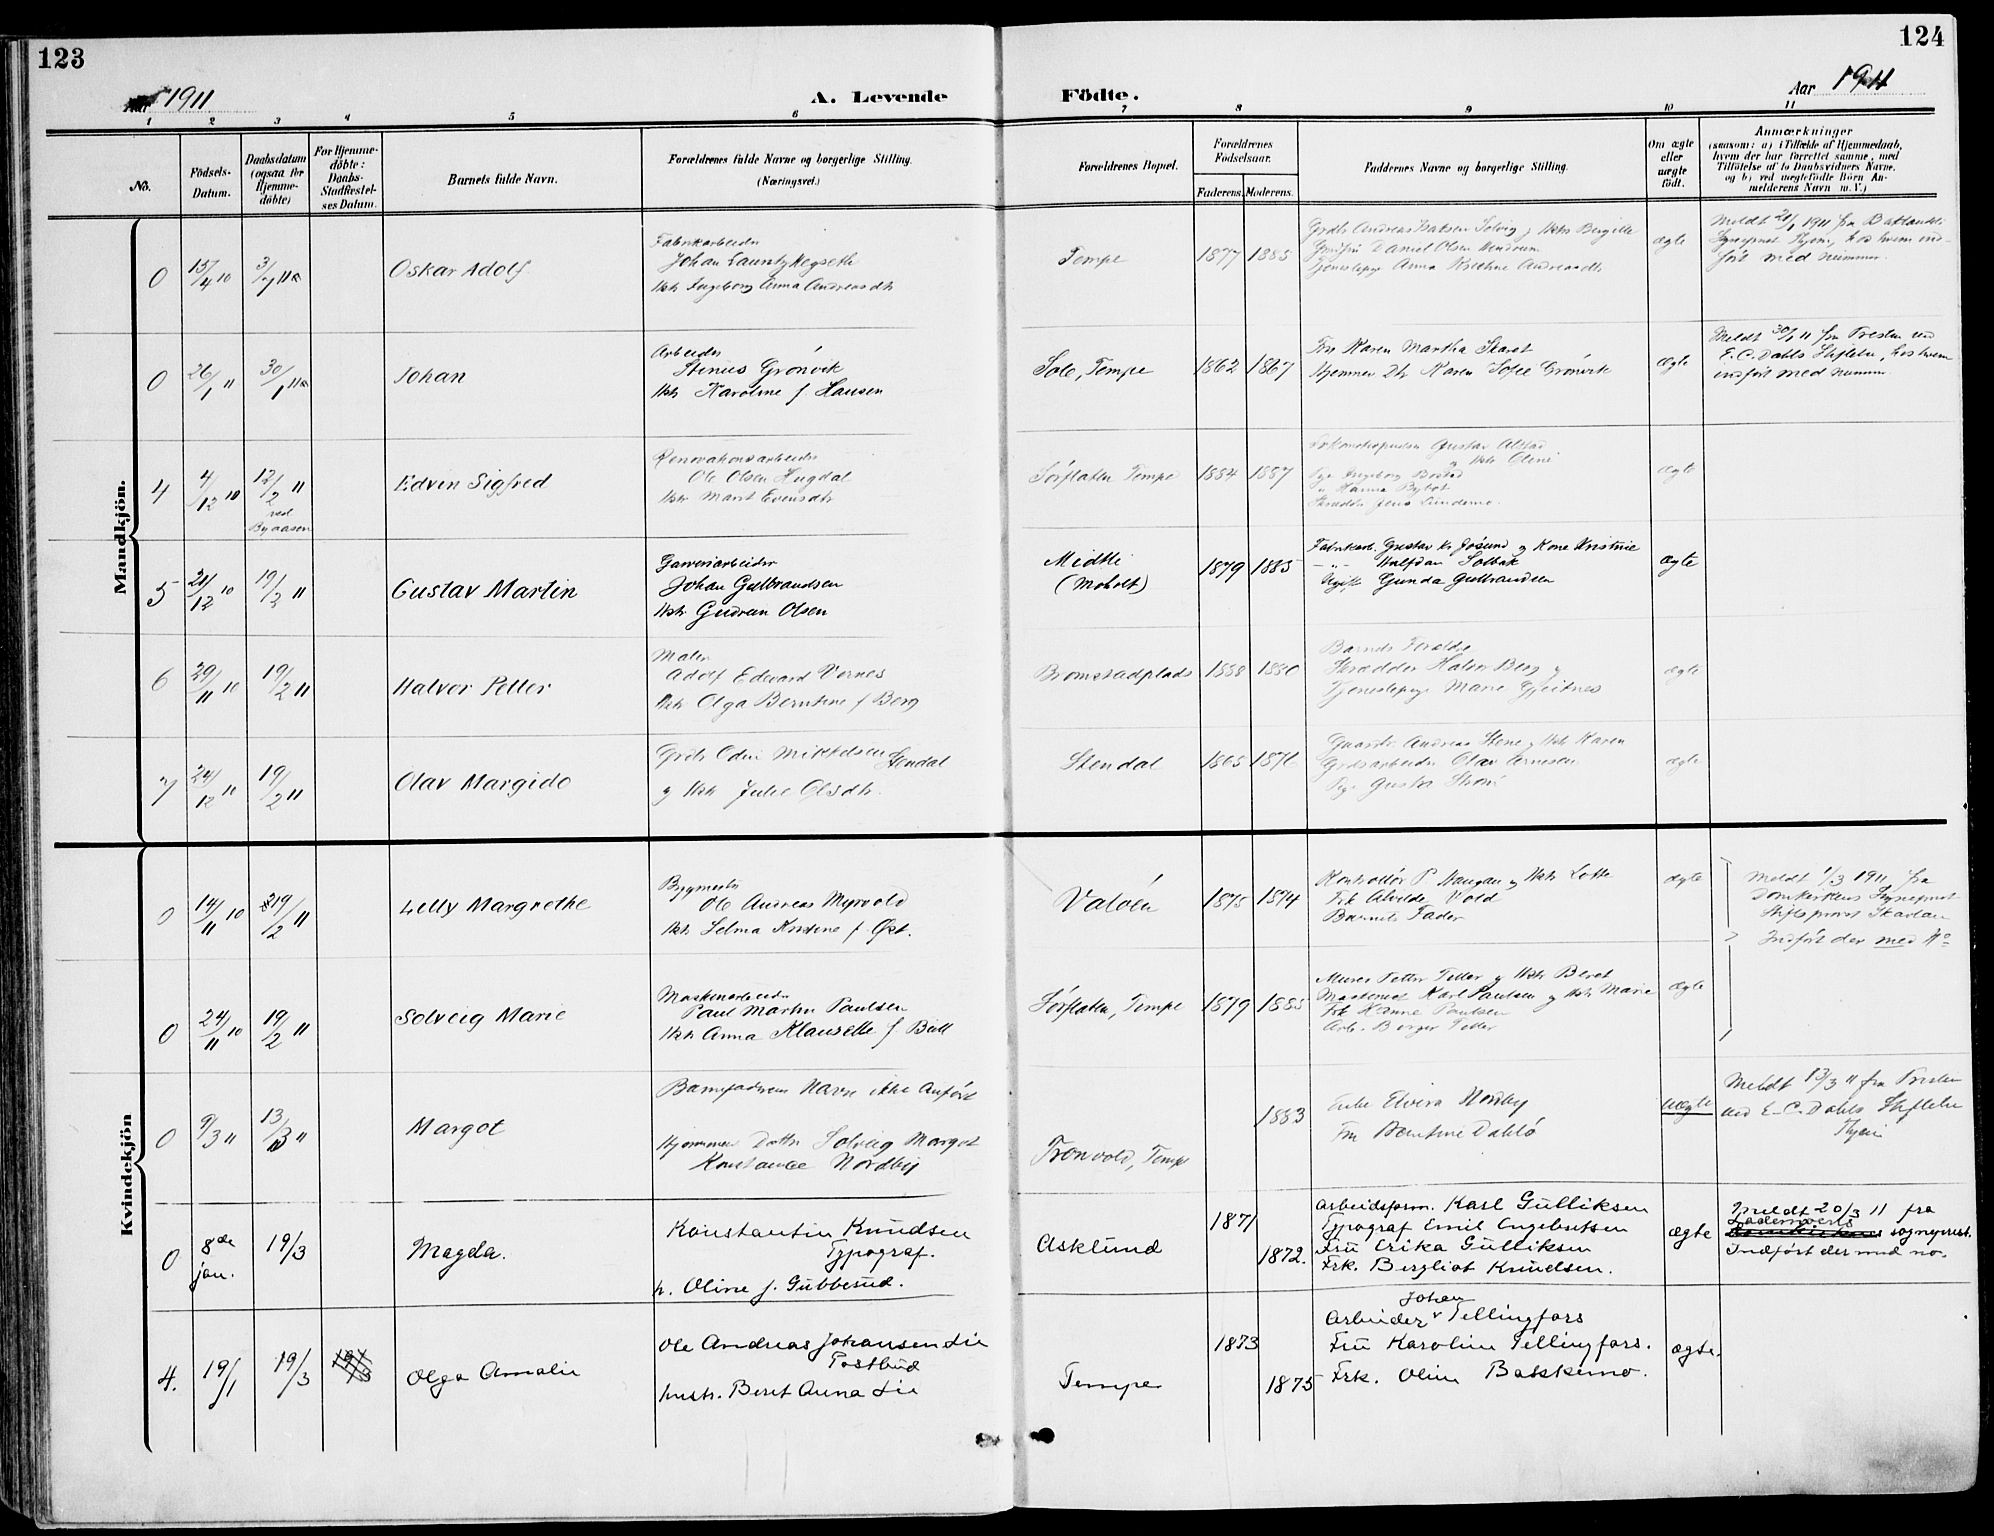 123
124
Aar 1911
A. Levende Födte.
Aar 1911
1 2 3 4 5 6 7 8 9 10 11
No.
Födsels-
Datum.
Daabsdatum
(ogsaa for
Hjemme-
döbte)
For Hjemme-
döbte:
Daabs-
Stadfæstel-
ses Datum.
Barnets fulde Navn.
Forældrenes fulde Navne og borgerlige Stilling.
(Næringsvei.)
Forældrenes Bopæl.
Forældrenes
Födselsaar.
Faderens. Moderens.
Faddernes Navne og borgerlige Stilling.
Om ægte
eller
uægte
födt.
Anmærkninger
(saasom: a) i Tilfælde af Hjemmedaab,
hvem der har forrettet samme, med
Tilföielse af to Daabsvidners Navne,
og b) ved uægtefödte Börn An-
melderens Navn m. V.)
Mandkjön.
0
15/4 10
Oskar Adolf
Fabrikarbeider
Johan Lauritz Hegseth
Hstr Ingeborg Anna Andreasdtr
Tempe
1877 1885
Daniel Olsen
Tjenestepige Anna
ægte
Meldt 1911 fra Baklandets
ført med nummer.
0
26/1 11
30/1 11
Johan
Arbeider
Stinius Grönvik
Hstr Karoline f. Hansen
Sole, Tempe
1862 1867
Fru Karen Martha Skaret
Hjemmev Dtr Karen Sofie Grönvik
ægte
Meldt 30/1 11 fra Presten ved
E.C. Dahls Stiftelse, hos hvem
indført med numm.
4
4/12 10
12/2 11
ved
Byaasen
Edvin Sigfred
Renovationsarbeider
Ole Olsen Hugdal
Hstr Marit Evensdtr
Sörflaten Tempe
1884 1887
Gustav Alstad
Hstr Oline
ægte
5
21/12 10
19/2 11
Gustav Martin
Garveriarbeider
Johan Gulbrandsen
Hstr Gudrun Olsen
Midtli
(Moholt)
1879 1885
Fabrikarb. Gustav Kr Jösund og Kone Kristine
-"- Halfdan Solbak
Ugift Gunda Gulbrandsen
ægte
6
29/11 10
19/2 11
Halvor Petter
Maler
Adolf Edvard Vornes
Hstr Olga Berntine f Berg
Bromstadplads
1888 1880
Barnets Forældre
Skrædder Halvor Berg og
Tjenestepige Marie Gjeitnes
ægte
7
24/12 10
19/2 11
Olav Margido
Grdbr Odin Mikkelsen Stendal
og Hstr Julie Olsdtr.
Stendal
1865 1876
Gaardbr. Andreas Stene og Hstr Karen
Grdsarbeider Olav Arnesen
Pige Gusta
ægte
Kvindekjön
0
14/11 10
19/2 11
Lelly Margrethe
Bygmester
Ole Andreas Myrvold
Hstr Selma Kristine f. Øst.
Valöen
1875 1874
Kontrollör P. Haugan og Hstr Lotte
Frk Alvilde Vold
Barnets Fader
ægte
Meldt 1/3 1911 fra
Domkirkens Sogneprest
Stiftsprovst
Indført der med No
0
24/11 10
19/2 11
Solveig Marie
Maskinarbeider
Paul Martin Paulsen
Hstr Anna Klausette f. Bull
Sörflaten, Tempe
1879 1885
Murer Petter Teller og Hstr Beret
Maskinist Karl Paulsen og Hstr Marie
Frk Hanna Paulsen
Arb. Birger Teller
ægte
0
9/3 11
13/3 11
Margot
Barnefaderens Navn ikke anført
Hjemmev Datter Solveig Margot
Konstance Nordby
Tronvold, Tempe
1883
Enke Elvira Nordby
Fru Berntine Dahlö
uægte
Meldt 13/3 11 fra Presten
ved E.C. Dahls Stiftelse
Thjem
0
8de
jan.
19/3
Magda.
Konstantin Knudsen
Typograf.
h. Oline f. Gubbesud.
Asklund
1871
1872.
Arbeidsform. Karl Gulliksen
Typograf Emil Engebretsen
Fru Erika Gulliksen
Frk. Bergliot Knudsen.
ægte
Meldt 20/3 11 fra
Lademoens
sogneprest.
Indført der med no.
4.
19/1
19/3
19/3
Olga Amalie
Ole Andreas Johansen Lie
Postbud
hustr. Beret Anna Lie
Tempe
1873
1875
Johan
Arbeider Tellingfors
Fru Karoline Tellingfors.
Frk. Oline Bakkemo.
ægte.